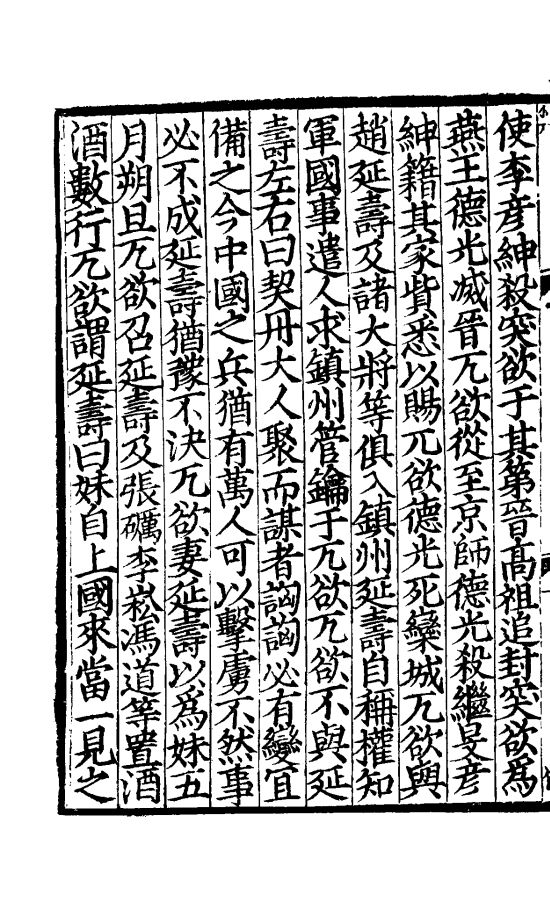 使李彦紳殺突欲于其第晉髙祖追封突欲為
燕王德光滅晉兀欲從至京師德光殺繼旻彦
紳籍其家貲悉以賜兀欲德光死欒城兀欲與
趙延壽及諸大將等俱入鎮州延壽自稱權知
軍國事遣人求鎮州管鑰于兀欲兀欲不與延
壽左右曰契丹大人聚而謀者詾詾必有變宜
備之今中國之兵猶有萬人可以擊虜不然事
必不成延壽猶豫不決兀欲妻延壽以爲妹五
月朔旦兀欲召延壽及張礪李崧馮道等置酒
酒數行兀欲謂延壽曰妹自上國來當一見之